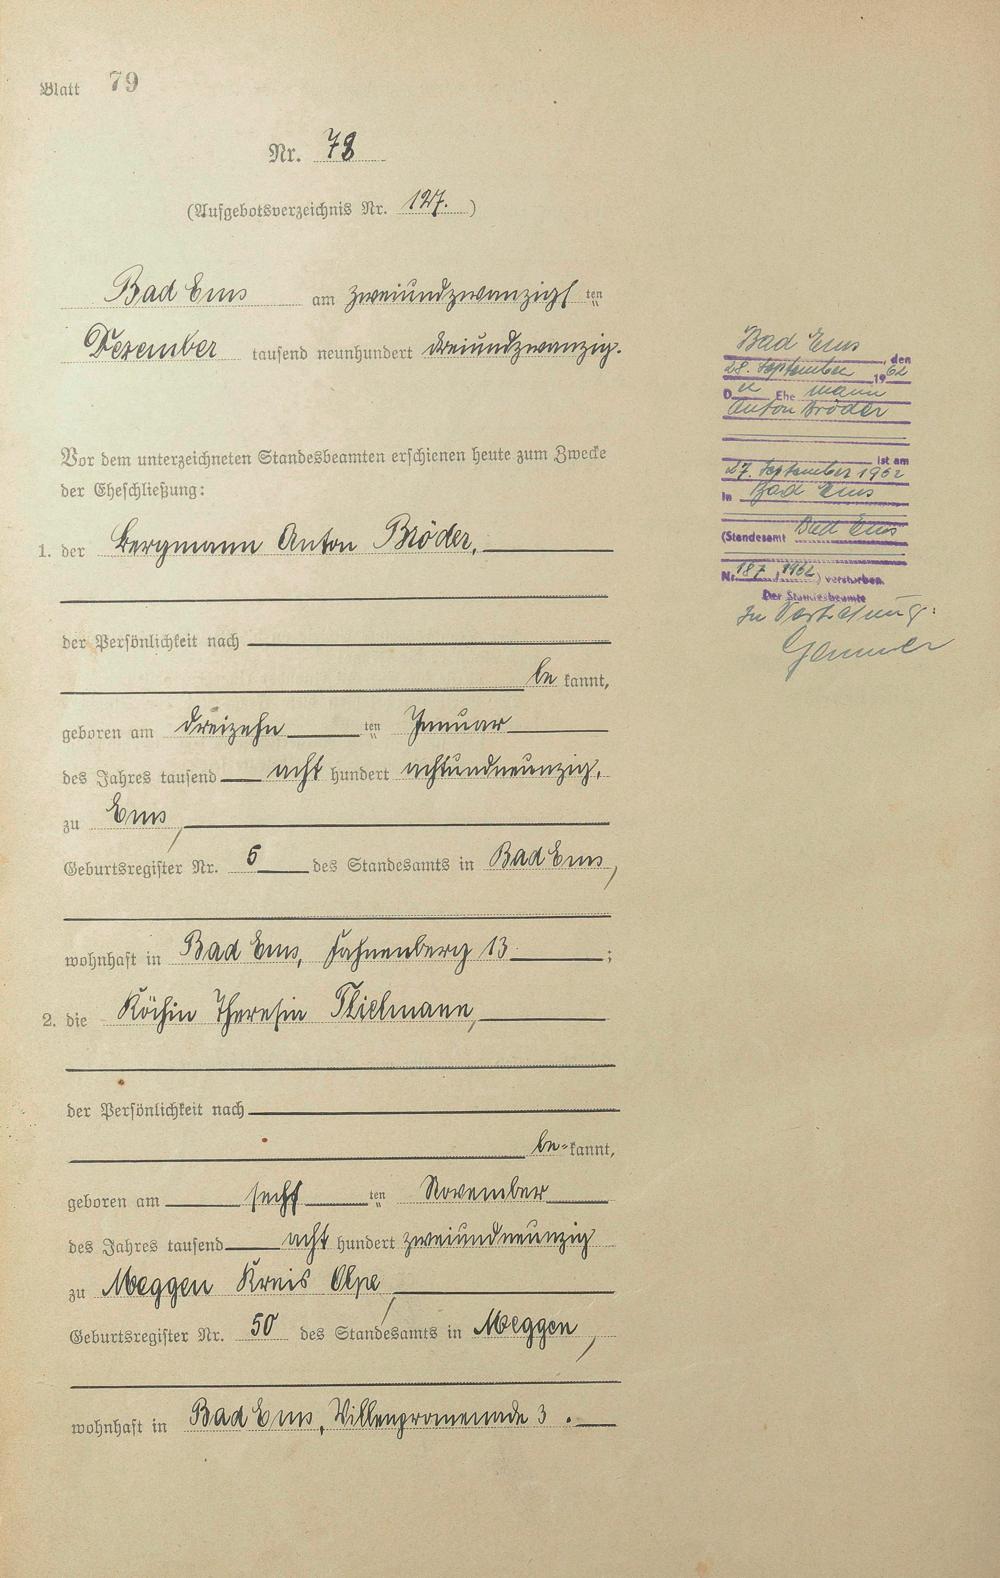 Blatt 79
Nr. 78
(Aufgebotsverzeichnis Nr. 127.)
Bad Ems am zweiundzwanzigs ten
Dezember tausend neunhundert dreiundzwanzig.
Vor dem unterzeichneten Standesbeamten erschienen heute zum Zwecke
der Eheschließung:
1. der Bergmann Anton Bröder,
der Persönlichkeit nach
be kannt,
geboren am dreizehn ten Januar
des Jahres tausend acht hundert achtundneunzig,
zu Ems,
Geburtsregister Nr. 5 des Standesamts in Bad Ems,
wohnhaft in Bad Ems, Fahnenberg 13 ;
2. die Köchin Theresia Thielmann,
der Persönlichkeit nach
be-kannt,
geboren am sechs ten November
des Jahres tausend acht hundert zweiundneunzig
zu Meggen Kreis Olpe,
Geburtsregister Nr. 50 des Standesamts in Meggen,
wohnhaft in Bad Ems, Villenpromenade 3.
Bad Ems, den
28. September 1962
Der Ehe mann
Anton Bröder
ist am
27. September 1962
in Bad Ems
(Standesamt Bad Ems
Nr. 187, 1962) verstorben.
Der Standesbeamte
In Vertretung: